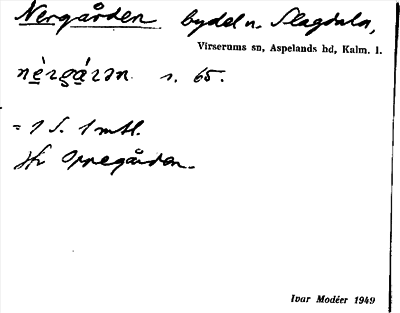 Nergården bydel n. Slagdala,
Virserums sn, Aspelands hd, Kalm. l.
nè̱rga̱ràn s. 65.
= 1 S. 1 mtl.
Jfr Oppegården.
Ivar Modéer 1949